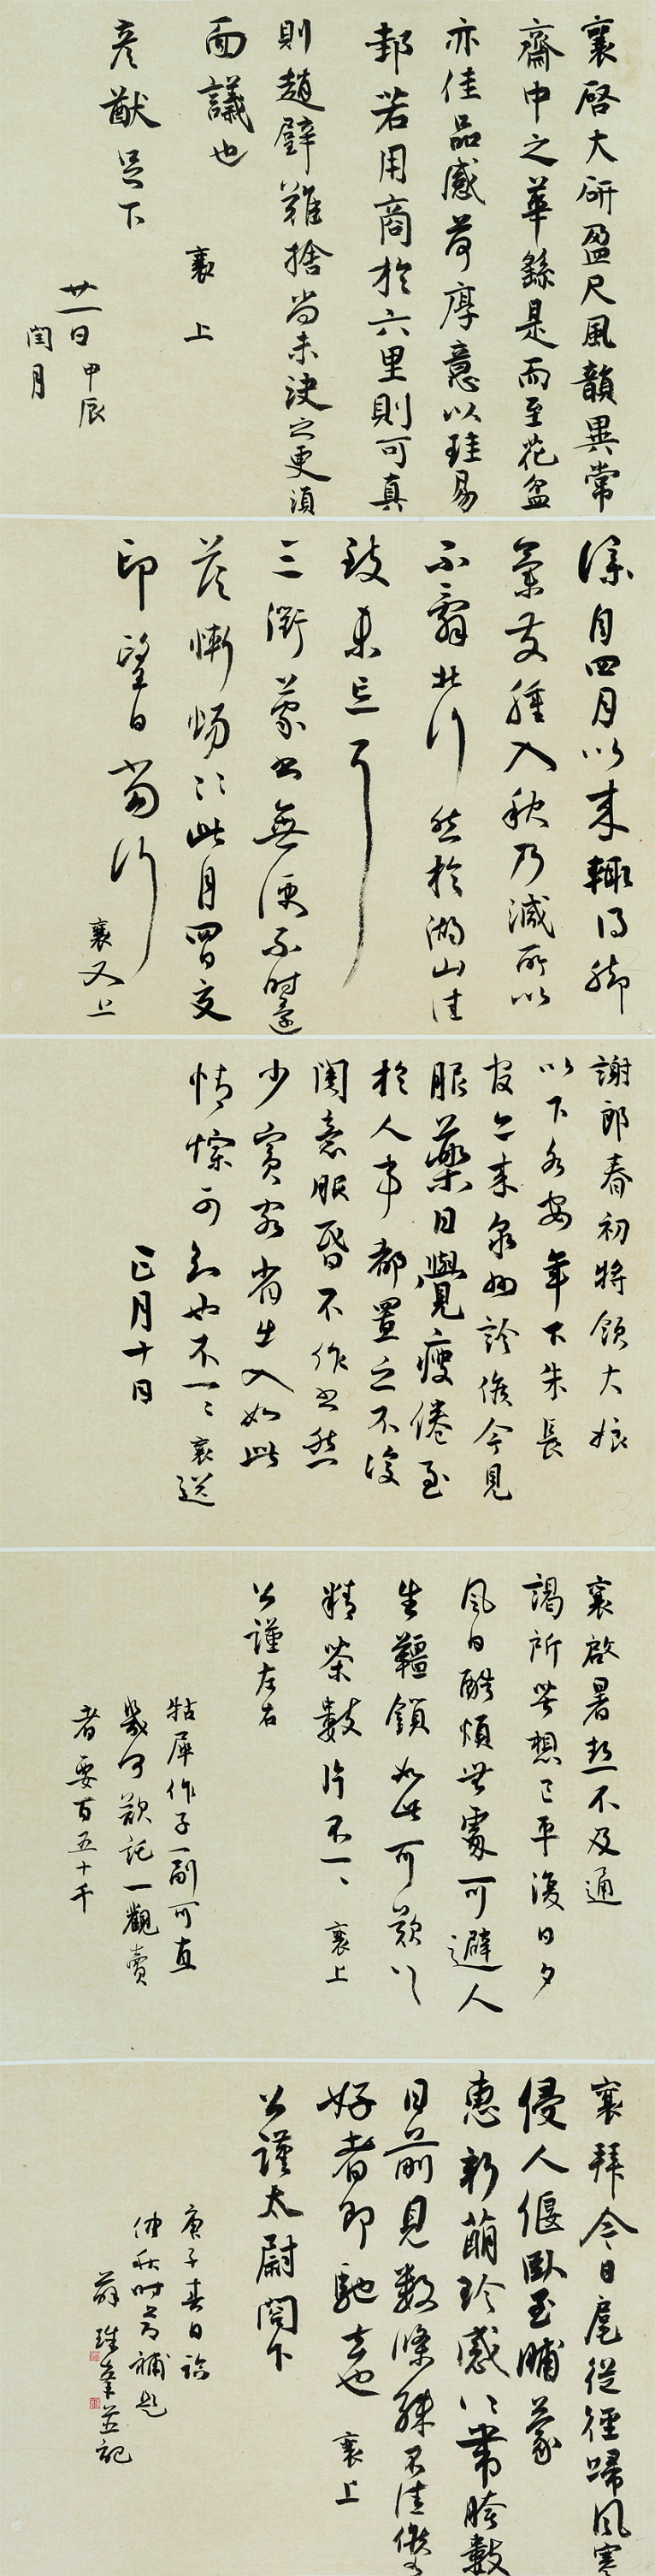 襄啓大研盈尺風韻異常
齋中之華繇是而至花盆
亦佳品感荷厚意以珪易
邽若用商於六里則可真
則趙璧難捨尚未決之更須
面議也 襄上
彦猷足下
廿一日甲辰
閏月
自四月以來輒得腳
氣發腫入秋乃減所以
不辭北行然於湖山佳
致未忘耳
三衢蒙書無便不時還
答慚惕惕此月四日交
印望日當行 襄又上
謝郎春初將領大娘
以下各安年下朱長
官亦來泉州診候今見
服藥日覺瘦倦至
於人事都置之不復
關意眼昏不作書然
少賓客省出入如此
情悰可知也不一一 襄送
正月十日
襄啟暑熱不及通
謁所苦想已平復日夕
風日酷煩無處可避人
生韁鎖如此可歎可歎
精茶數片不一一 襄上
公謹左右
牯犀作子一副可直
幾何欲託一觀賣
者要百五十千
襄拜今日扈從徑歸風寒
侵人偃臥至晡蒙
惠新萌珍感珍感帶胯數
日前見數條殊不佳候
好者即馳去也 襄上
公謹太尉閤下
庚子春日臨
仲秋時節補題
並記